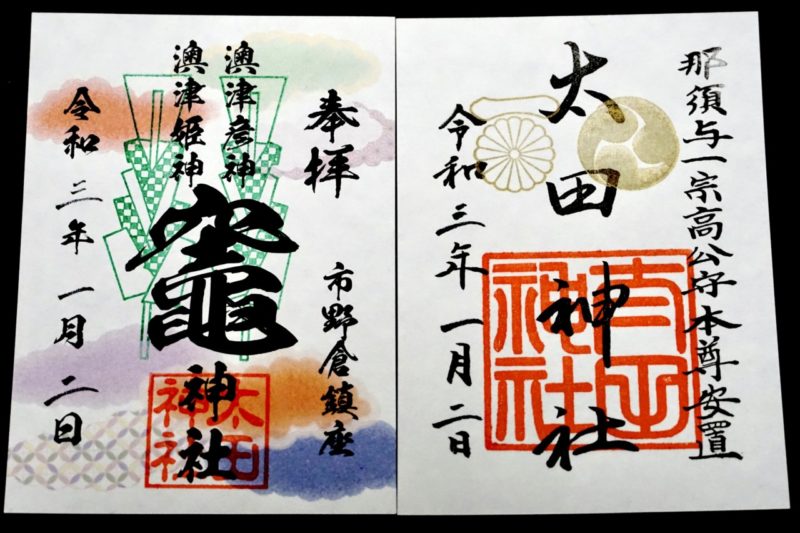 那須与一宗高公守本尊安置
太田神社
令和三年一月二日
太田神社
奉拝
市野倉鎮座
澳津彦神
澳津姫神
竈神社
令和三年一月二日
太田神社